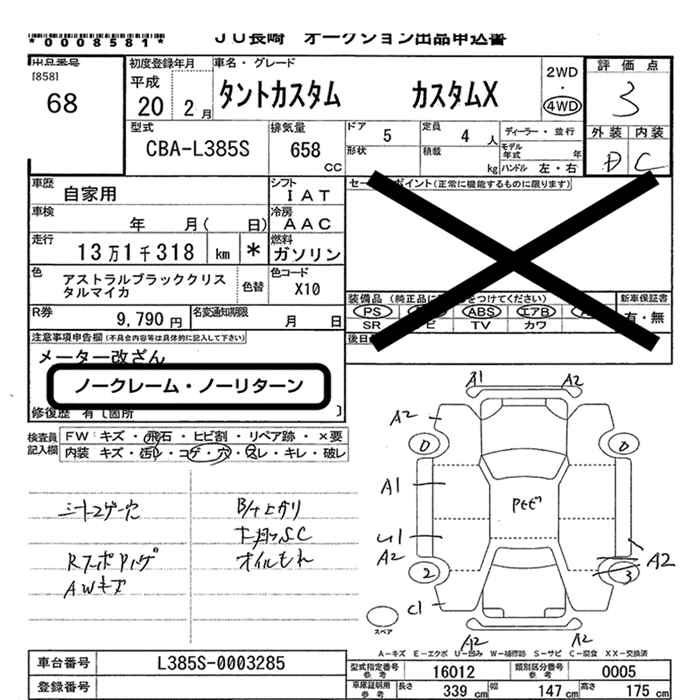 *0008581*
JU長崎 オークション出品申込書
出品番号
[858]
68
初度登録年月
平成
20 2 月
車名・グレード
タントカスタム カスタムX
2WD
・
4WD
評価点
3
外装 内装
D C
型式
CBA-L385S
排気量
658
CC
ドア 5
定員 4 人
ディーラー・並行
形状
積載 kg
モデル年式 年
ハンドル 左・右
車歴 自家用
シフト
IAT
車検 年 月( 日)
冷房
AAC
走行 13万1千318 km *
燃料
ガソリン
色 アストラルブラッククリス
タルマイカ
色替
色コード
X10
R券 9,790 円
名変通知期限 月 日
セー ポイント(正常に機能するものに限ります)
装備品(純正品に をつけてください)
新車保証書
PS ABS エアB
有・無
SR ビ TV カワ
後日
注意事項申告欄(不具合内容等は具体的に記入して下さい)
メーター改ざん
ノークレーム・ノーリターン
修復歴 有〔箇所 〕
検査員
記入欄
FW キズ・飛石・ヒビ割・リペア跡・×要
内装 キズ・汚レ・コゲ・穴・スレ・キレ・破レ
シートコゲ穴
B/Hヒカリ
下回りSC
オイルもれ
AWキズ
A1 A2
A2
0 0
A1
PAビビ
U1
A2
2 3
A2
C1
A2
スペア
A-キズ E-エクボ U-凹み W-補修跡 S-サビ C-腐食 XX-交換済
車台番号 L385S-0003285
登録番号
型式指定番号
参考
16012
類別区分番号
参考
0005
車庫証明用
参考
長さ 339 cm
幅 147 cm
高さ 175 cm